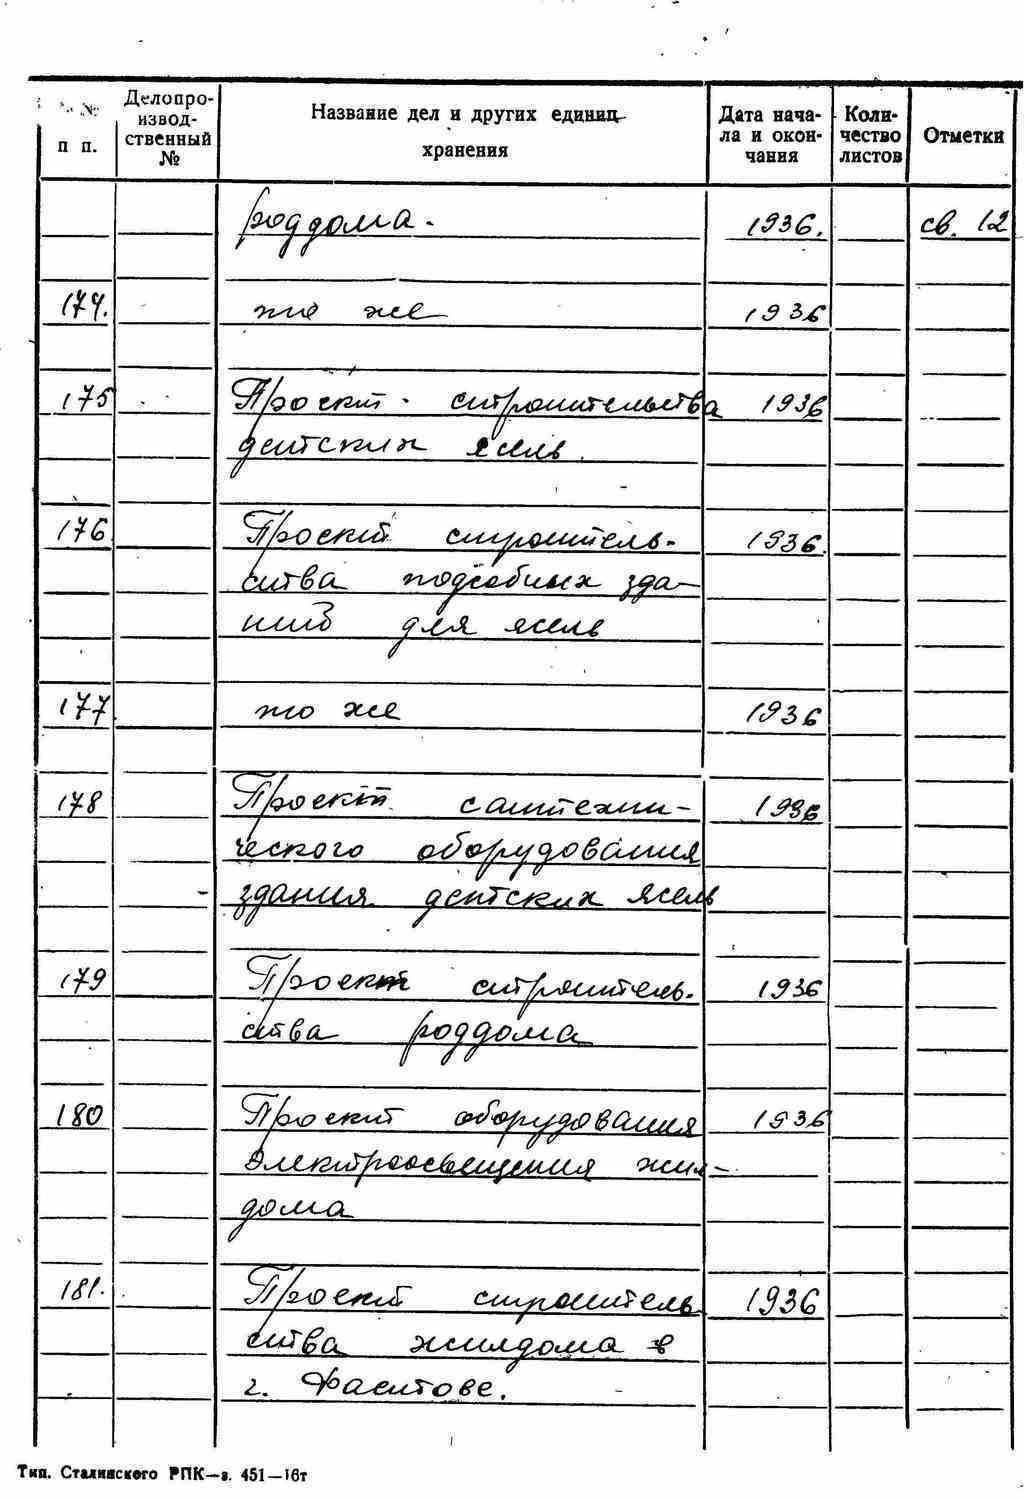 №№ п п.
Делопроизвод-ственный №
Название дел и других единиц хранения
Дата нача-ла и окон-чания
Коли-чество листов
Отметки
роддома. 1936. св. 12
174. то же 1936
175 Проект строительства 1936
детских ясель.
176 Проект строитель- 1936.
ства подсобных зда-
ний для ясель
177 то же 1936
178 Проект сантехни- 1936
ческого оборудования
здания детских ясель
179 Проект строитель- 1936
ства роддома
180 Проект оборудования 1936
электроосвещения жил-
дома
181. Проект строитель- 1936
ства жилдома в
г. Фастове.
Тип. Сталинского РПК—з. 451—16т